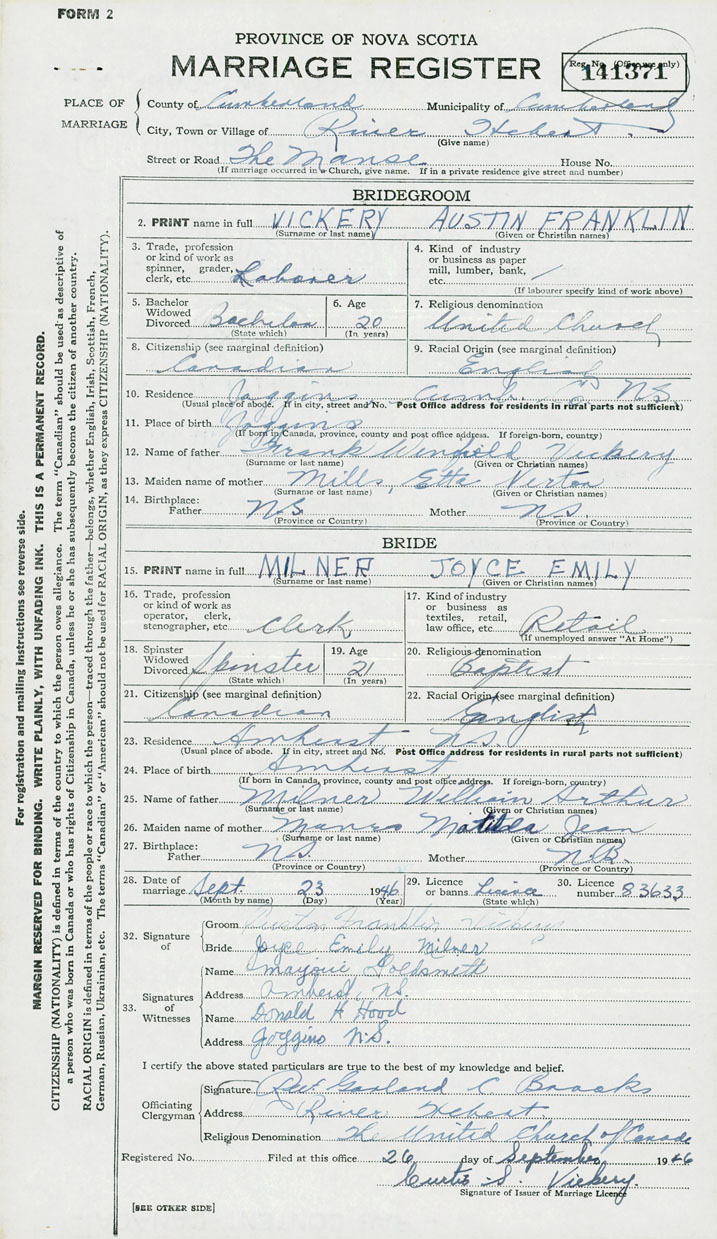 FORM 2
PROVINCE OF NOVA SCOTIA
MARRIAGE REGISTER
Reg. No. (Office use only)
141371
PLACE OF MARRIAGE
County of Cumberland Municipality of Cumberland
City, Town or Village of River Hebert
(Give name)
Street or Road The Manse House No.
(If marriage occurred in a Church, give name. If in a private residence give street and number)
BRIDEGROOM
2. PRINT name in full VICKERY AUSTIN FRANKLIN
(Surname or last name) (Given or Christian names)
3. Trade, profession or kind of work as spinner, grader, clerk, etc. Laborer
4. Kind of industry or business as paper mill, lumber, bank, etc.
(If labourer specify kind of work above)
5. Bachelor Widowed Divorced Bachelor (State which)
6. Age 20 (In years)
7. Religious denomination United Church
8. Citizenship (see marginal definition) Canadian
9. Racial Origin (see marginal definition) English
10. Residence Joggins Cumb. Co NS
(Usual place of abode. If in city, street and No. Post Office address for residents in rural parts not sufficient)
11. Place of birth Joggins
(If born in Canada, province, county and post office address. If foreign-born, country)
12. Name of father Frank Winfield Vickery
(Surname or last name) (Given or Christian names)
13. Maiden name of mother Mills, Etta
(Surname or last name) (Given or Christian names)
14. Birthplace: Father N.S. Mother N.S.
(Province or Country) (Province or Country)
BRIDE
15. PRINT name in full MILNER JOYCE EMILY
(Surname or last name) (Given or Christian names)
16. Trade, profession or kind of work as operator, clerk, stenographer, etc. Clerk
17. Kind of industry or business as textiles, retail, law office, etc. Retail
(If unemployed answer "At Home")
18. Spinster Widowed Divorced Spinster (State which)
19. Age 21 (In years)
20. Religious denomination Baptist
21. Citizenship (see marginal definition) Canadian
22. Racial Origin (see marginal definition) English
23. Residence Amherst N.S.
(Usual place of abode. If in city, street and No. Post Office address for residents in rural parts not sufficient)
24. Place of birth Amherst
(If born in Canada, province, county and post office address. If foreign-born, country)
25. Name of father Milner William Arthur
(Surname or last name) (Given or Christian names)
26. Maiden name of mother Matilda Jean
(Surname or last name) (Given or Christian names)
27. Birthplace: Father N.S. Mother N.B.
(Province or Country) (Province or Country)
28. Date of marriage Sept. 23 1946
(Month by name) (Day) (Year)
29. Licence or banns Licence (State which)
30. Licence number 83633
32. Signature of
Groom Austin Franklin Vickery
Bride Joyce Emily Milner
33. Signatures of Witnesses
Name Marjorie Goldsmith
Address Amherst, N.S.
Name Donald A Hood
Address Joggins N.S.
I certify the above stated particulars are true to the best of my knowledge and belief.
Officiating Clergyman
Signature Rev. Garland C. Brooks
Address River Hebert
Religious Denomination The United Church of Canada
Registered No. Filed at this office 26 day of September 1946
Curtis S. Vickery.
Signature of Issuer of Marriage Licence
[SEE OTHER SIDE]
For registration and mailing instructions see reverse side.
MARGIN RESERVED FOR BINDING. WRITE PLAINLY, WITH UNFADING INK. THIS IS A PERMANENT RECORD.
CITIZENSHIP (NATIONALITY) is defined in terms of the country to which the person owes allegiance. The term "Canadian" should be used as descriptive of
a person who was born in Canada or who has rights of Citizenship in Canada, unless he or she has subsequently become the citizen of another country.
RACIAL ORIGIN is defined in terms of the people or race to which the person—traced through the father—belongs, whether English, Irish, Scottish, French,
German, Russian, Ukrainian, etc. The terms "Canadian" or "American" should not be used for RACIAL ORIGIN, as they express CITIZENSHIP (NATIONALITY).